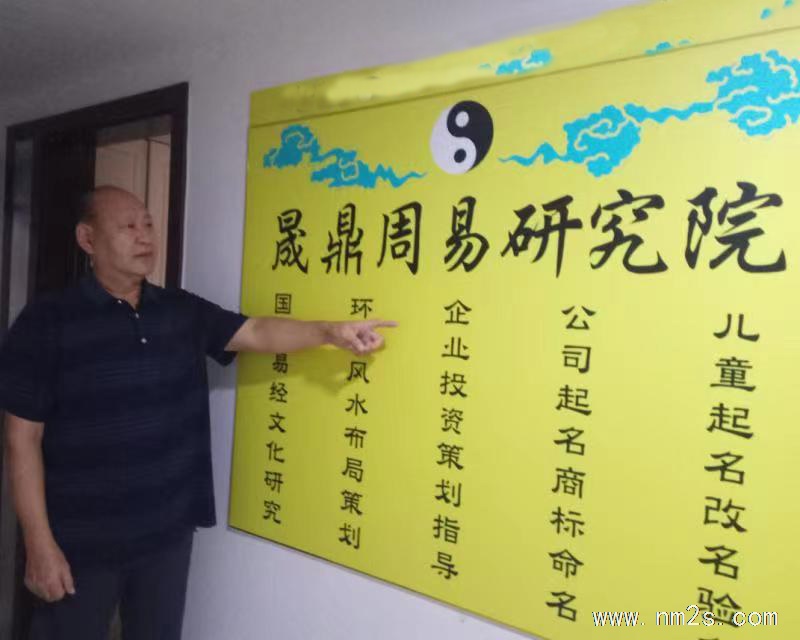 晟鼎周易研究院
国易经文化研究
环风水布局策划
企业投资策划指导
公司起名商标命名
儿童起名改名验
www.nm2s.com